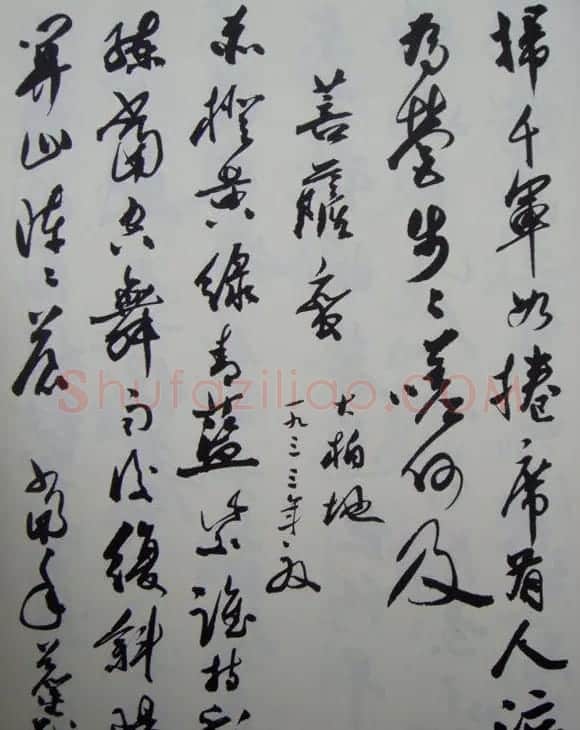 掃千軍如捲席有人泣
為營步〻嗟何及
菩薩蠻 大柏地
一九三三年夏
赤橙黄綠青藍紫誰持彩
練當空舞雨後復斜陽
關山陣〻蒼 當年鏖
Shufaziliao.COM